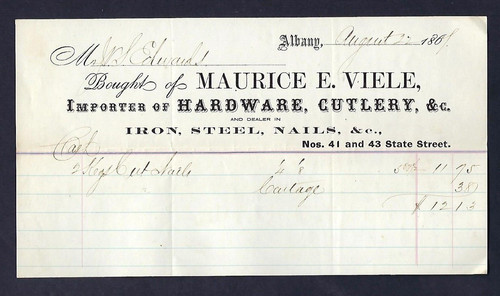 Albany, August 22 186
Mr Edwards
Bought of MAURICE E. VIELE,
IMPORTER OF HARDWARE, CUTLERY, &c.
AND DEALER IN
IRON, STEEL, NAILS, &c.,
Nos. 41 and 43 State Street.
Cash
2 Kegs Cut Nails 11 75
Cartage 38
$ 12 13